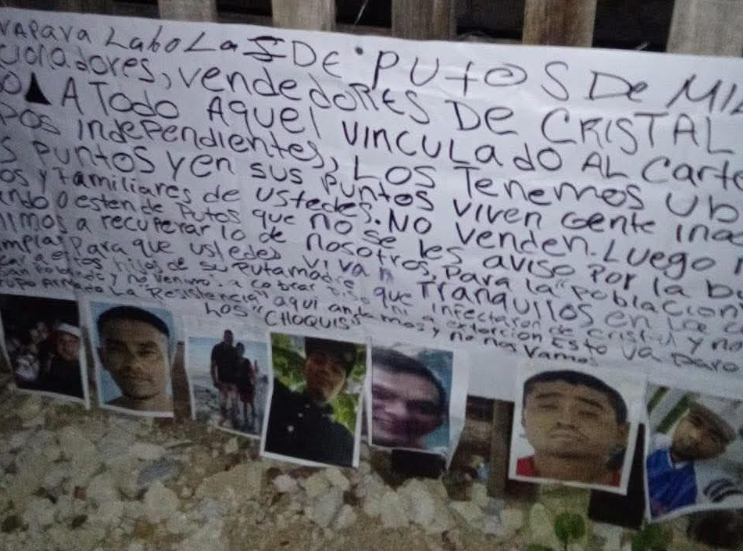 VA PARA LA bOLA S DE PUTOS DE MI
DORES, VENDEDORES DE CRISTAL
O A TODO AQUEL VINCULADO AL CARTE
POS INDEPENDIENTES, LOS TENEMOS UB
S PUNTOS Y EN SUS PUNTOS VIVEN GENTE INOC
OS Y FAMILIARES DE USTEDES. NO VENDEN. LUEGO
NDO ESTEN DE PUTOS QUE NO SE LES AVISO POR LA bU
NIMOS A RECUPERAR LO DE NOSOTROS, PARA LA POBLACION
PARA QUE USTEDES VIVAN TRANQUILOS EN LA
HIJOS DE SU PUTA MADRE QUE INFECTARON DE CRISTAL Y NO
Y NO VENIMOS A COBRAR PISO NI A EXTORCION ESTO VA PARO
ARMADO LA RESISTENCIA AQUI ANDAMOS Y NO NOS VAMOS
LOS "CHOQUIS"